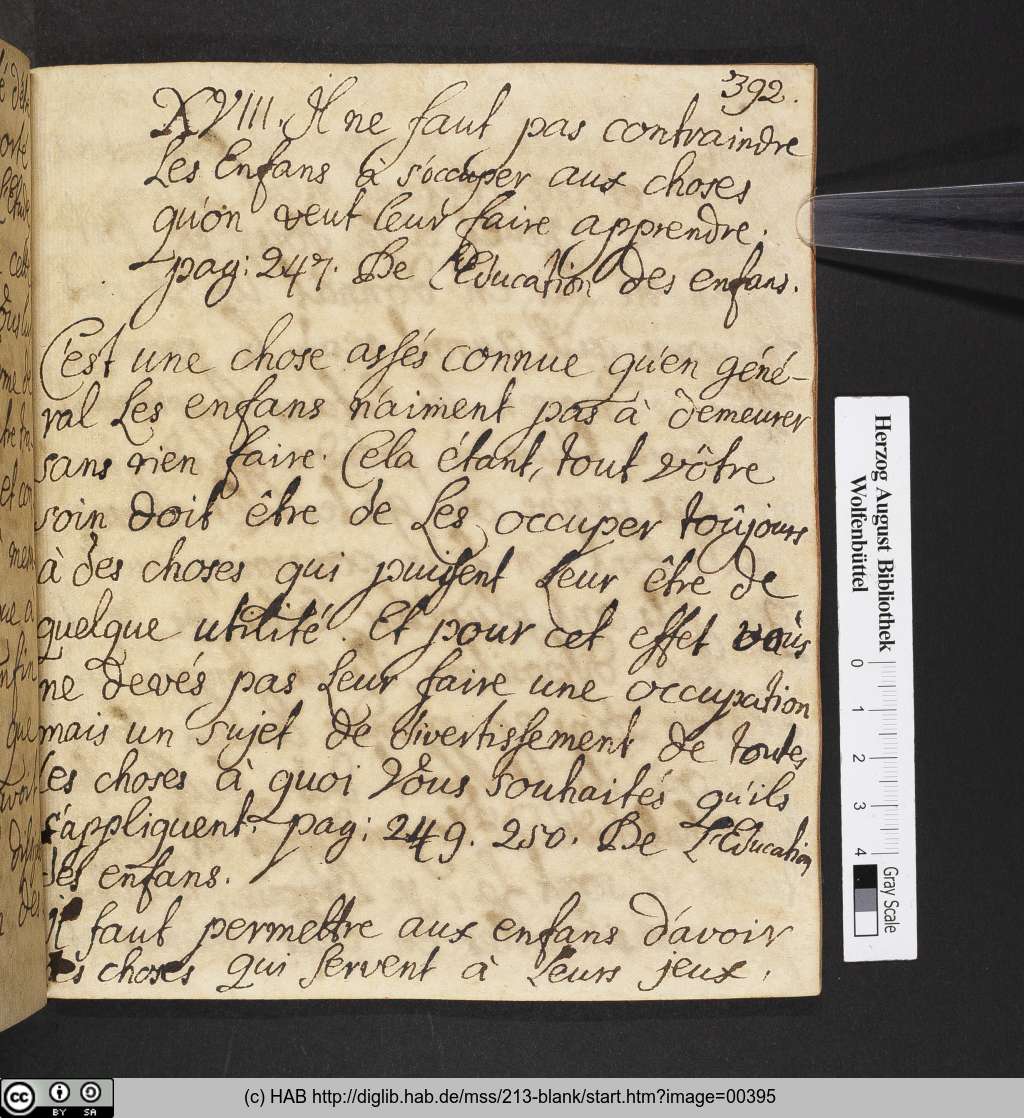 392.
XVIII. Il ne faut pas contraindre
Les Enfans à s'occuper aux choses
qu'on veut leur faire apprendre.
pag: 247. De L'Education des enfans.
C'est une chose assés connue qu'en géné-
ral Les enfans n'aiment pas à demeurer
sans rien faire. Cela étant, tout vôtre
soin doit être de Les occuper toûjours
à des choses qui puissent Leur être de
quelque utilité. Et pour cet effet vous
ne devés pas Leur faire une occupation
mais un sujet de divertissement de toutes
les choses à quoi Vous souhaités qu'ils
s'appliquent. pag: 249. 250. De L'Education
des enfans.
Il faut permettre aux enfans d'avoir
des choses qui servent à Leurs jeux,
Herzog August Bibliothek
Wolfenbüttel
0 1 2 3 4
Gray Scale
cc BY SA
(c) HAB http://diglib.hab.de/mss/213-blank/start.htm?image=00395